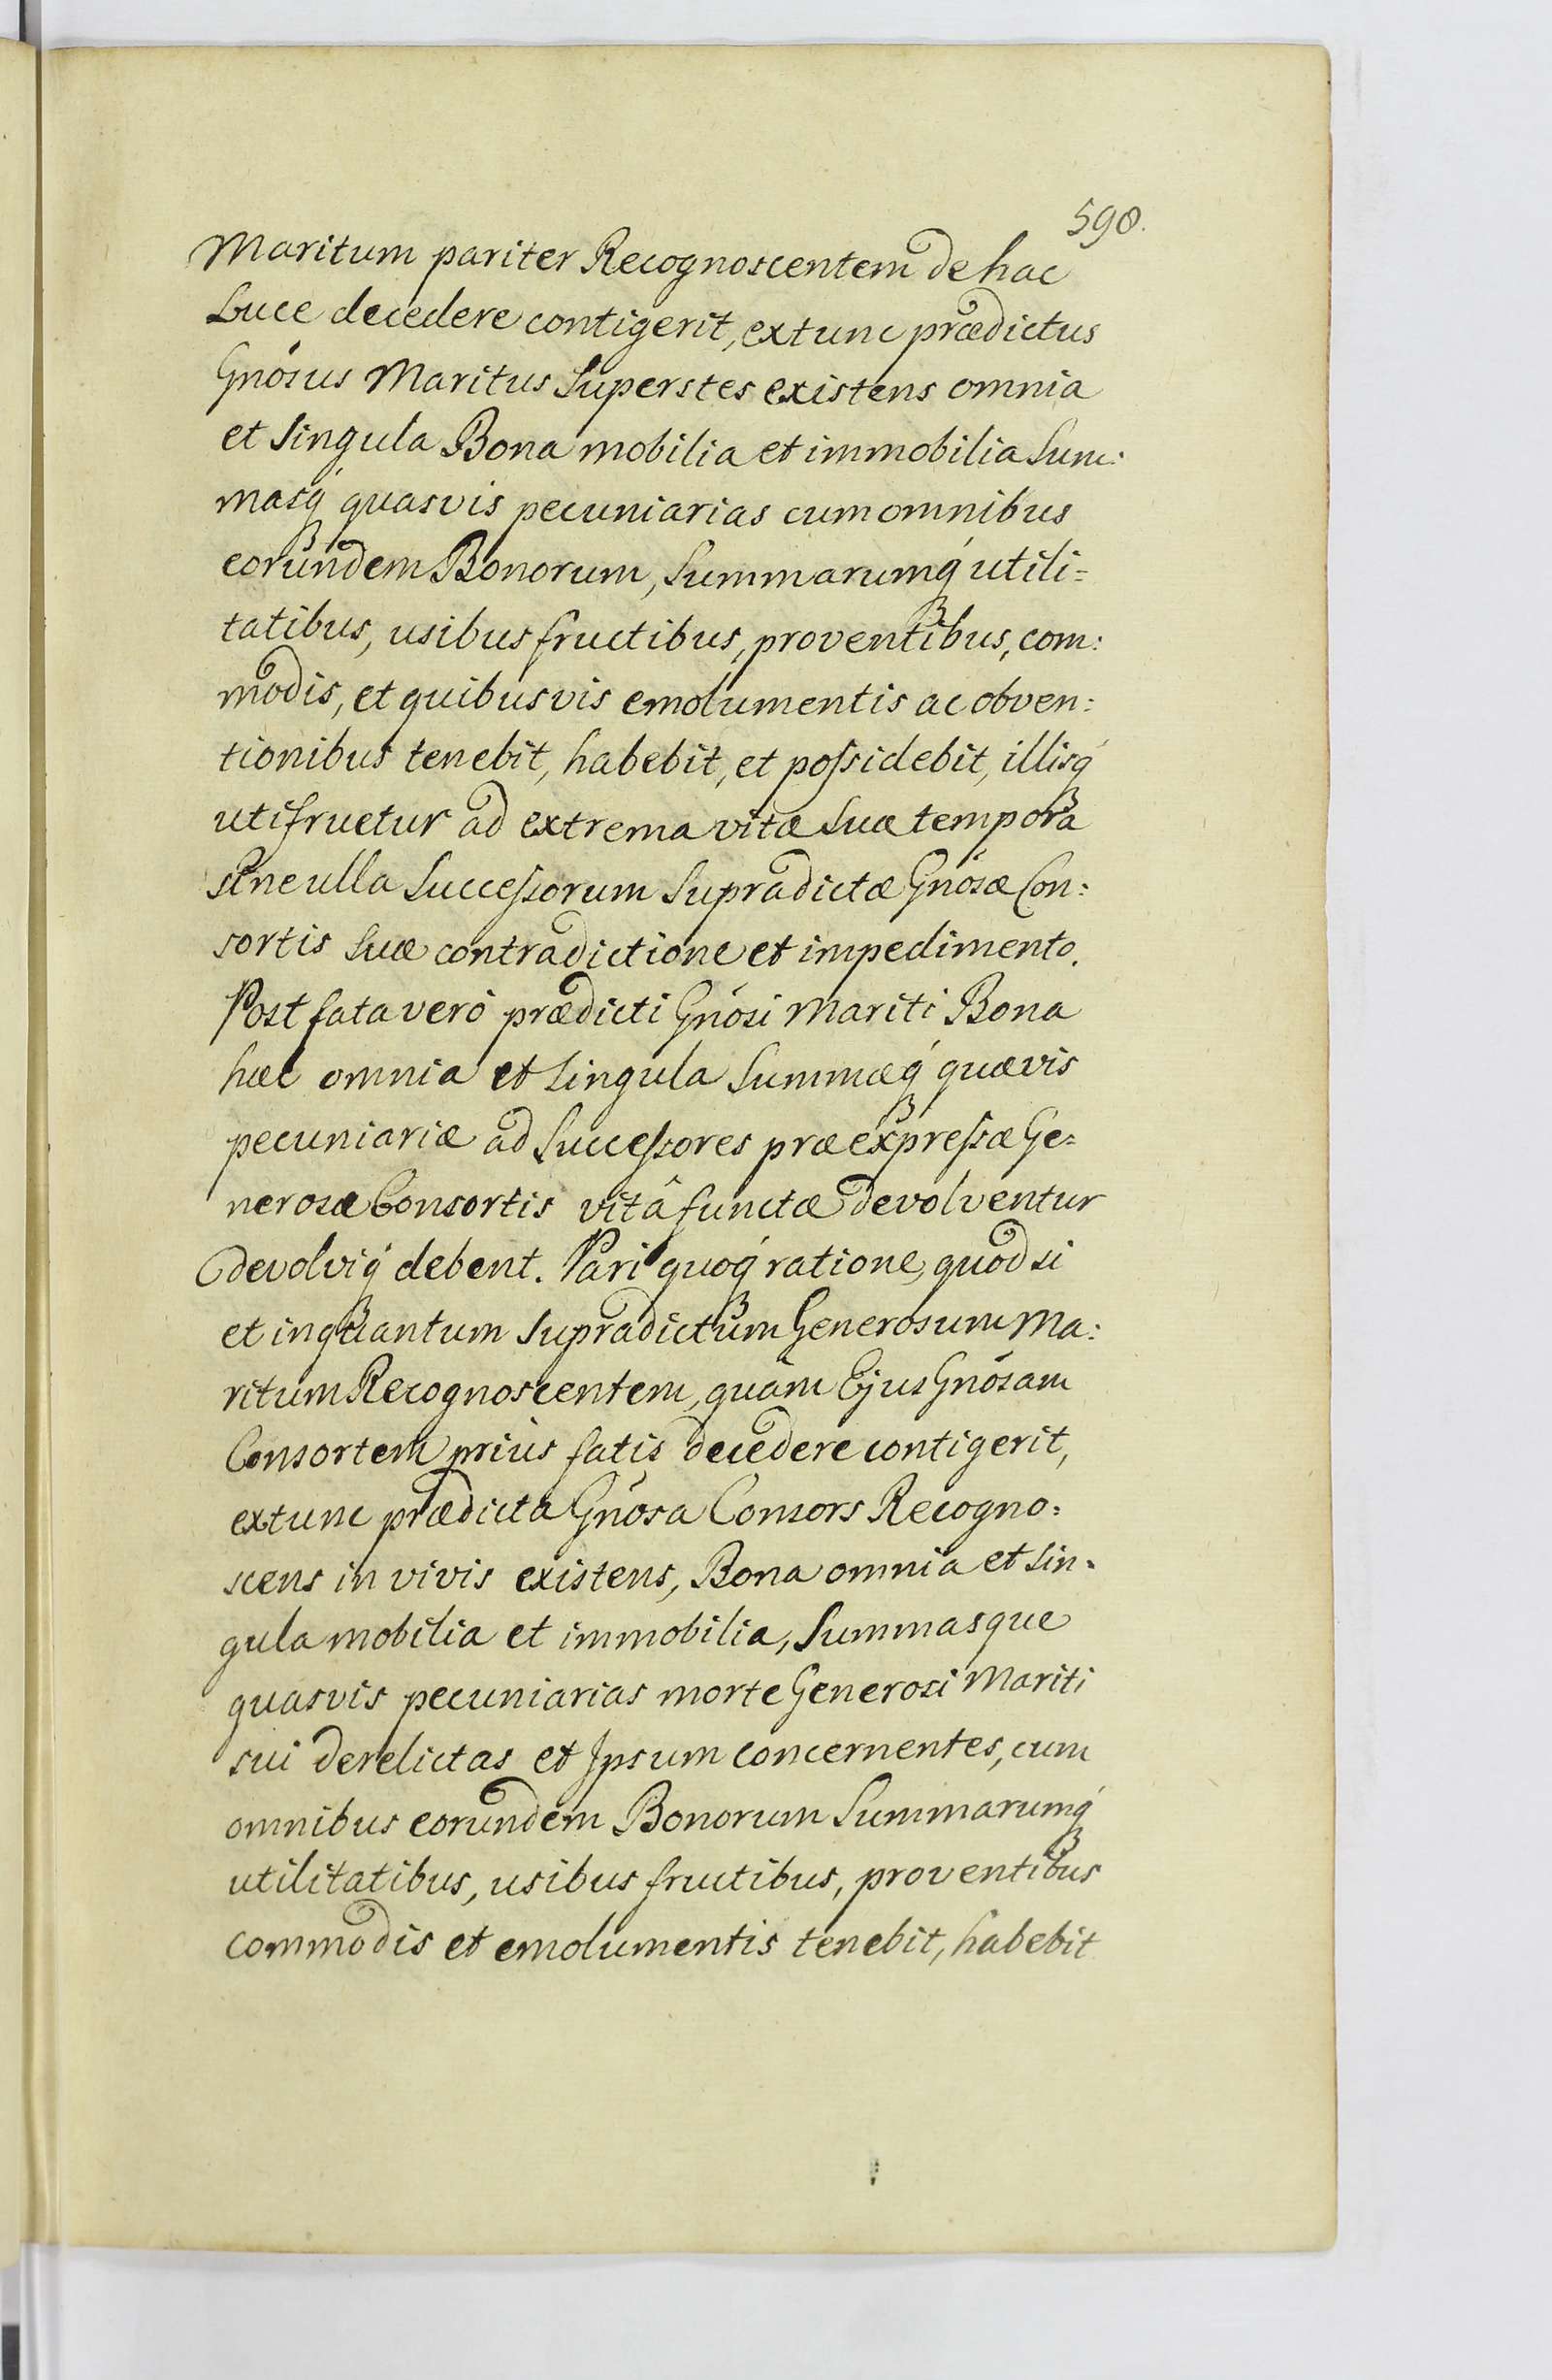 598.
Maritum pariter Recognoscentem de hac
Luce decedere contigerit, extunc prædictus
Gnosus Maritus Superstes existens omnia
et Singula Bona mobilia et immobilia Sum:
masq́ quasvis pecuniarias cum omnibus
eorundem Bonorum, Summarumq́ utili=
tatibus, usibus fructibus, proventibus, com:
modis, et quibusvis emolumentis ac obven:
tionibus tenebit, habebit, et poſsidebit, illisq́
utifruetur ad extrema vitæ Suæ tempora
sine ulla Succeſsorum Supradictæ Gnosæ Con:
sortis Suæ contradictione et impedimento.
Post fata verò prædicti Gnosi Mariti Bona
hæc omnia et Singula Summæq́ quævis
pecuniariæ ad Succeſsores præexpreſsæ Ge=
nerosæ Consortis vitâ functæ devolventur
devolviq́ debent. Pari quoq́ ratione, quod si
et inquantum Supradictum Generosum Ma:
ritum Recognoscentem, quàm Ejus Gnosam
Consortem priùs fatis decedere contigerit,
extunc prædicta Gnosa Consors Recogno:
scens in vivis existens, Bona omnia et Sin=
gula mobilia et immobilia, Summasque
quasvis pecuniarias morte Generosi Mariti
sui derelictas et Ipsum concernentes, cum
omnibus eorundem Bonorum Summarumq́
utilitatibus, usibus fructibus, proventibus
commodis et emolumentis tenebit, habebit